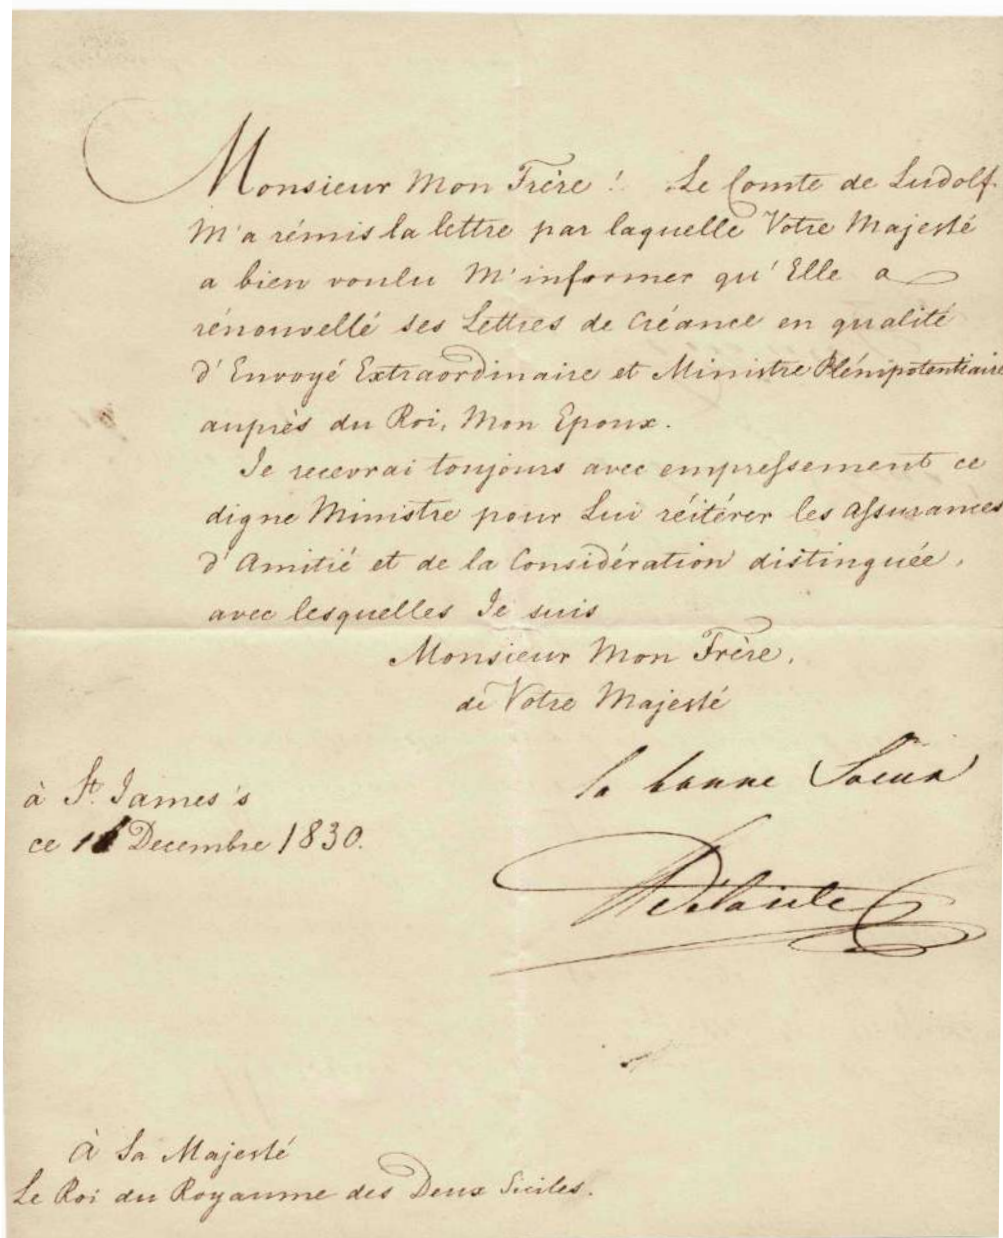 Monsieur Mon Frère! Le Comte de Ludolf
M'a rémis la lettre par laquelle Votre Majesté
a bien voulu M'informer qu'Elle a
rénouvellé ses Lettres de Créance en qualité
d'Envoyé Extraordinaire et Ministre Plénipotentiaire
auprès du Roi, Mon Epoux.
Je recevrai toujours avec empreſsement ce
digne Ministre pour Lui réitérer les Aſsurances
d'Amitié et de la Considération distinguée,
avec lesquelles Je suis
Monsieur Mon Frère,
de Votre Majesté
la bonne Soeur
à St. James's
ce Decembre 1830.
Adélaide
À Sa Majesté
Le Roi du Royaume des Deux Siciles.